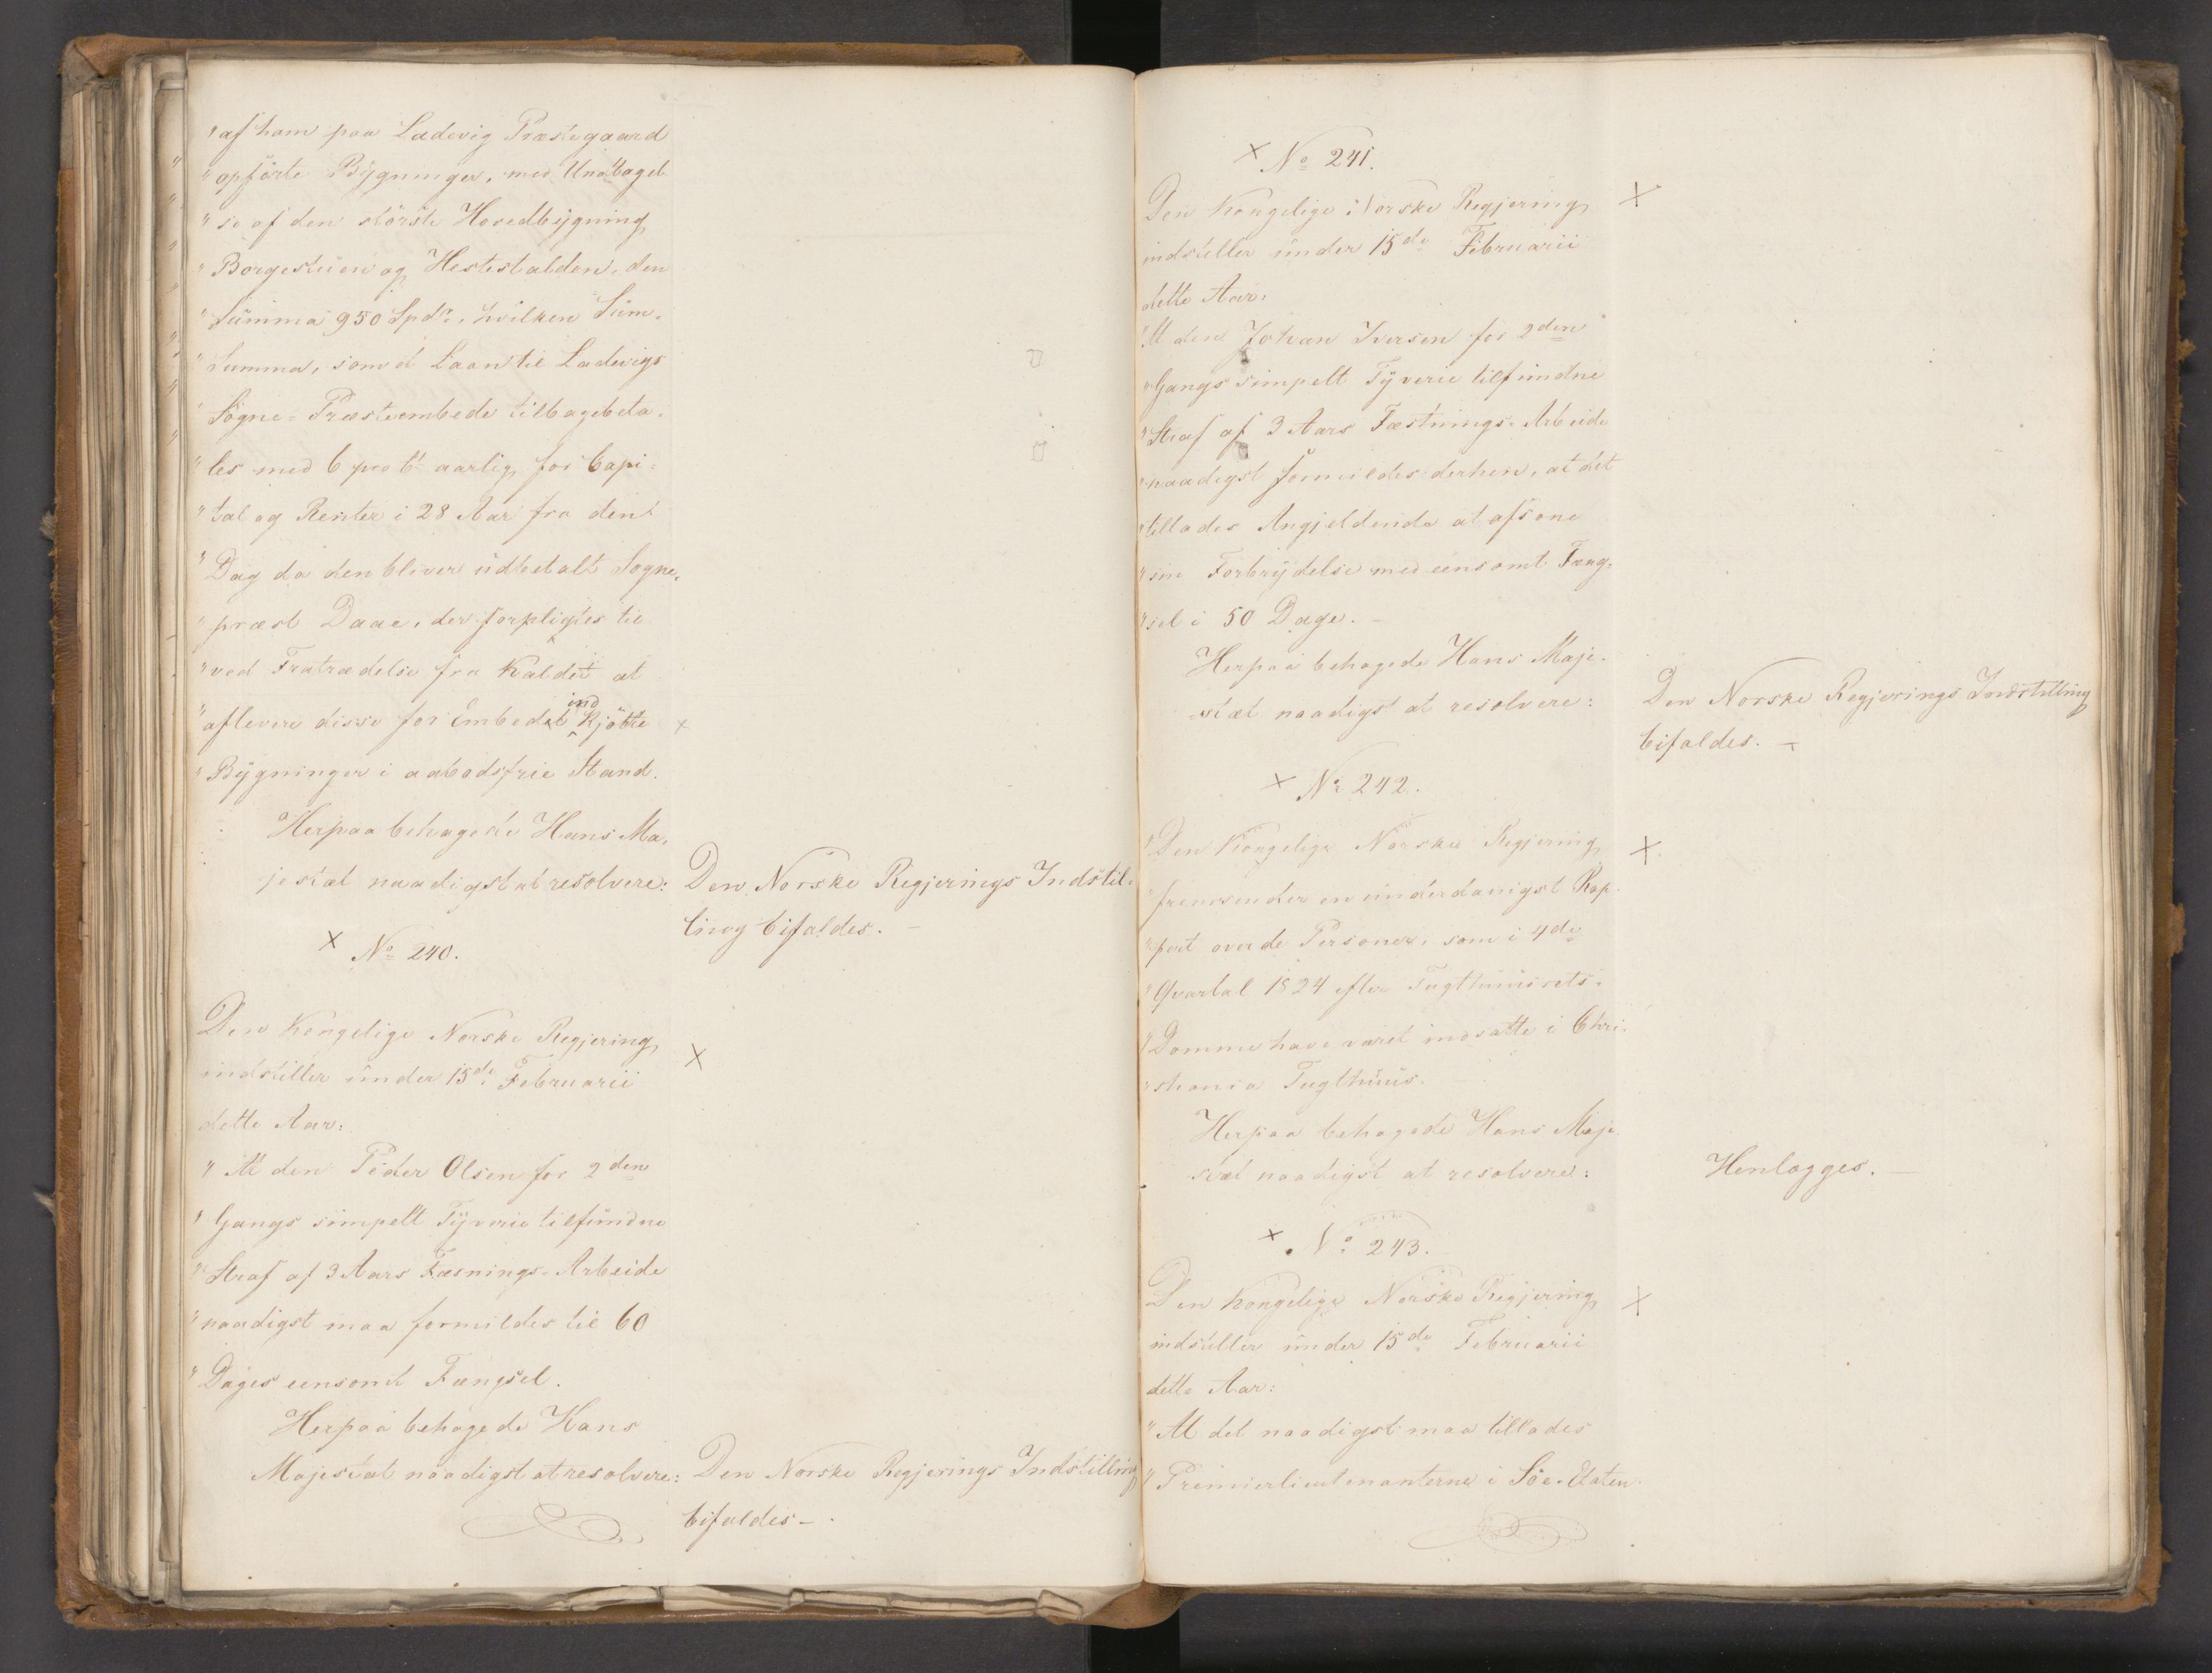 "af ham paa Ladevig Præstegaard
"opførte Bygninger, med Undtagel
"se af den störste Hovedbygning
"Borgestuen og Hestestalden, den
"Summa 950 Spdr, hvilken Sum-
"Summa, som et Laan til Ladevigs
"Sogne-Præsteembede tilbagebeta-
"les med 6 pro Ct aarlig for Capi-
"tal og Renter i 28 Aar fra den
"Dag da den bliver udbetalt Sogne-
"præst Daae, der forpligtes til
"ved Fratrædelse fra Kaldet at
"aflevere disse for Embedet indkjøbte
"Bygninger i aabodsfrie Stand.
Herpaa behagede Hans Ma-
jestæt naadigst at resolvere:
Den Norske Regjerings Indstil-
ling bifaldes. -
× No 240.
Den Kongelige Norske Regjering
indstiller under 15de Februarii
dette Aar:
"At den Peder Olsen for 2den
"Gangs simpelt Tyverie tilfundne
"Straf af 3 Aars Fæsnings-Arbeide
"naadigst maa formildes til 60
"Dages eensomt Fængsel.
Herpaa behagede Hans
Majestæt naadigst at resolvere:
Den Norske Regjerings Indstilling
bifaldes -.
× No 241.
Den Kongelige Norske Regjering
indstiller under 15de Februarii
dette Aar:
"At den Johan Iversen for 2den
"Gangs simpelt Tyverie tilfundne
"Straf af 3 Aars Fæstnings-Arbeide
"naadigst formildes derhen, at det
"tillades Angjeldende at afsone
"sin Forbrydelse med eensomt Fæng-
"sel i 50 Dage. -
Herpaa behagede Hans Maje-
stæt naadigst at resolvere:
Den Norske Regjerings Indstilling
bifaldes. -
× No 242.
"Den Kongelige Norske Regjering
"fremsender en underdanigst Rap-
"port over de Personer, som i 4de
"Qvartal 1824 efter Tugthuusrets-
"Domme have været indsatte i Chri-
"stiania Tugthuus.
Herpaa behagede Hans Maje
stæt naadigst at resolvere:
Henlægges. -
× No 243.
Den Kongelige Norske Regjering
indstiller under 15de Februarii
dette Aar:
"At det naadigst maa tillades
"Premierlieutenanterne i Söe-Etaten